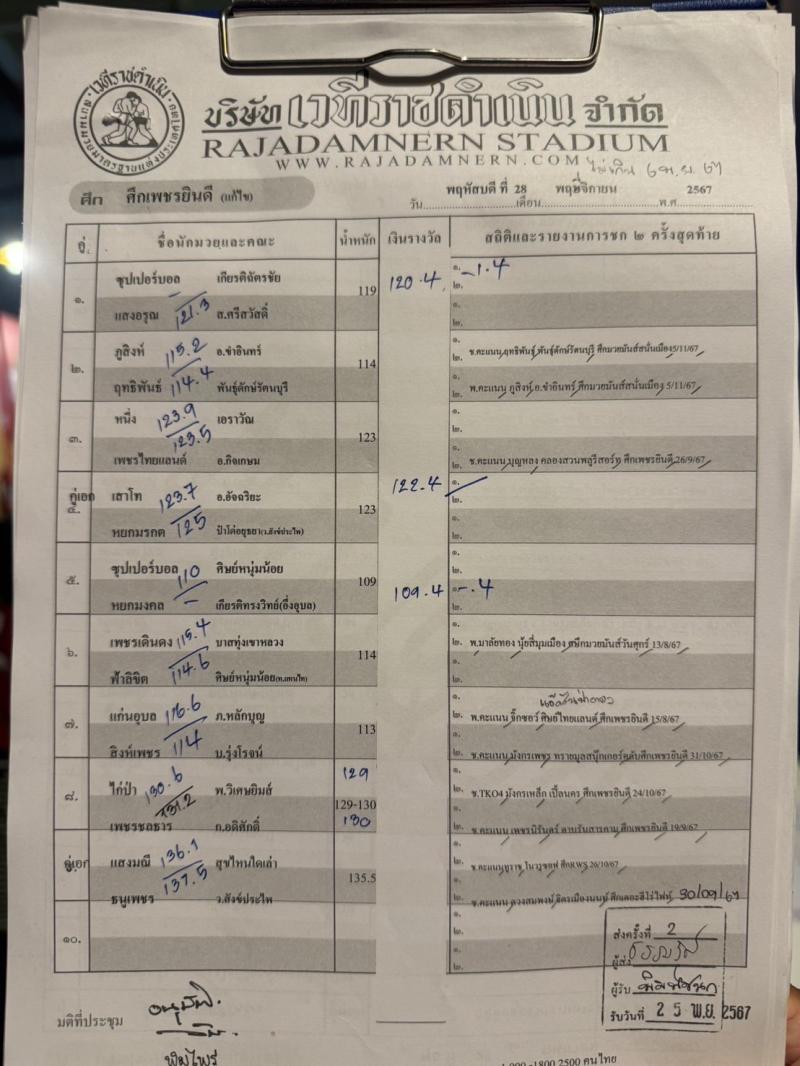 เวทีราชดำเนิน
บริษัท เวทีราชดำเนิน จำกัด
RAJADAMNERN STADIUM
WWW.RAJADAMNERN.COM
ศึก ศึกเพชรยินดี (แก้ไข)
วัน พฤหัสบดี ที่ 28 เดือน พฤศจิกายน พ.ศ. 2567
คู่ ชื่อนักมวยและคณะ น้ำหนัก เงินรางวัล สถิติและรายงานการชก ๒ ครั้งสุดท้าย
๑. ซุปเปอร์บอล เกียรติฉัตรชัย 119 120.4 ๑. -1.4
๒.
แสงอรุณ 121.3 ส.ศรีสวัสดิ์ ๑.
๒.
๒. ภูสิงห์ 115.2 อ.ขำอินทร์ 114 ๑.
๒. ช.คะแนน ฤทธิพันธุ์ พันธุ์ดักษ์รัตนบุรี ศึกมวยมันส์สนั่นเมือง 5/11/67
ฤทธิพันธ์ 114.4 พันธุ์ดักษ์รัตนบุรี ๑.
๒. พ.คะแนน ภูสิงห์ อ.ขำอินทร์ ศึกมวยมันส์สนั่นเมือง 5/11/67
๓. หนึ่ง 123.9 เอราวัณ 123 ๑.
๒.
เพชรไทยแลนด์ 123.5 อ.กิจเกษม ๑.
๒. ช.คะแนน บุญหลง คลองสวนพลูรีสอร์ท ศึกเพชรยินดี 26/9/67
คู่เอก ๔. เสาโท 123.7 อ.อัจฉริยะ 123 122.4 ๑.
๒.
หยกมรกต 125 ป๋าโต่อยุธยา(ว.สังข์ประไพ) ๑.
๒.
๕. ซุปเปอร์บอล 110 ศิษย์หนุ่มน้อย 109 ๑.
๒.
หยกมงคล - เกียรติทรงวิทย์(อึ่งอุบล) 109.4 ๑. -.4
๒.
๖. เพชรเดินดง 115.4 บาสทุ่งเขาหลวง 114 ๑.
๒. พ.มาลัยทอง นุ้ยสี่มุมเมือง ศึกมวยมันส์วันศุกร์ 13/8/67
ฟ้าลิขิต 114.6 ศิษย์หนุ่มน้อย ๑.
๒.
๗. แก่นอุบล 116.6 ภ.หลักบุญ 113 ๑.
๒. พ.คะแนน จิ๊กซอว์ ศิษย์ไทยแลนด์ ศึกเพชรยินดี 15/8/67
สิงห์เพชร 114 บ.รุ่งโรจน์ ๑.
๒. ช.คะแนน มังกรเพชร ทรายมูลสนุ๊กเกอร์คลับ ศึกเพชรยินดี 31/10/67
๘. ไก่ป่า 130.6 พ.วิเศษยิมส์ 129 ๑.
129-130 ๒. ช.TKO4 มังกรเหล็ก เปี้ยนคร ศึกเพชรยินดี 24/10/67
เพชรชลธาร 131.2 ก.อดิศักดิ์ 130 ๑.
๒. ช.คะแนน เพชรนิรันดร์ ดาบรันสารคาม ศึกเพชรยินดี 19/9/67
คู่เอก แสงมณี 136.1 สุขไหนใดเล่า 135.5 ๑.
๒. ช.คะแนน ศึกRWS 26/10/67
ธนูเพชร 137.5 ว.สังข์ประไพ ๑.
๒. ช.คะแนน ดวงสมพงษ์ จิตรเมืองนนท์ ศึกเดอะฮีโร่ไฟท์ 30/09/67
๑๐. ๑.
๒.
๑.
๒.
ส่งครั้งที่ 2
ผู้ส่ง
ผู้รับ
รับวันที่ 25 พ.ย. 2567
มติที่ประชุม
พิมไพร์
-1800 2500 คนไทย